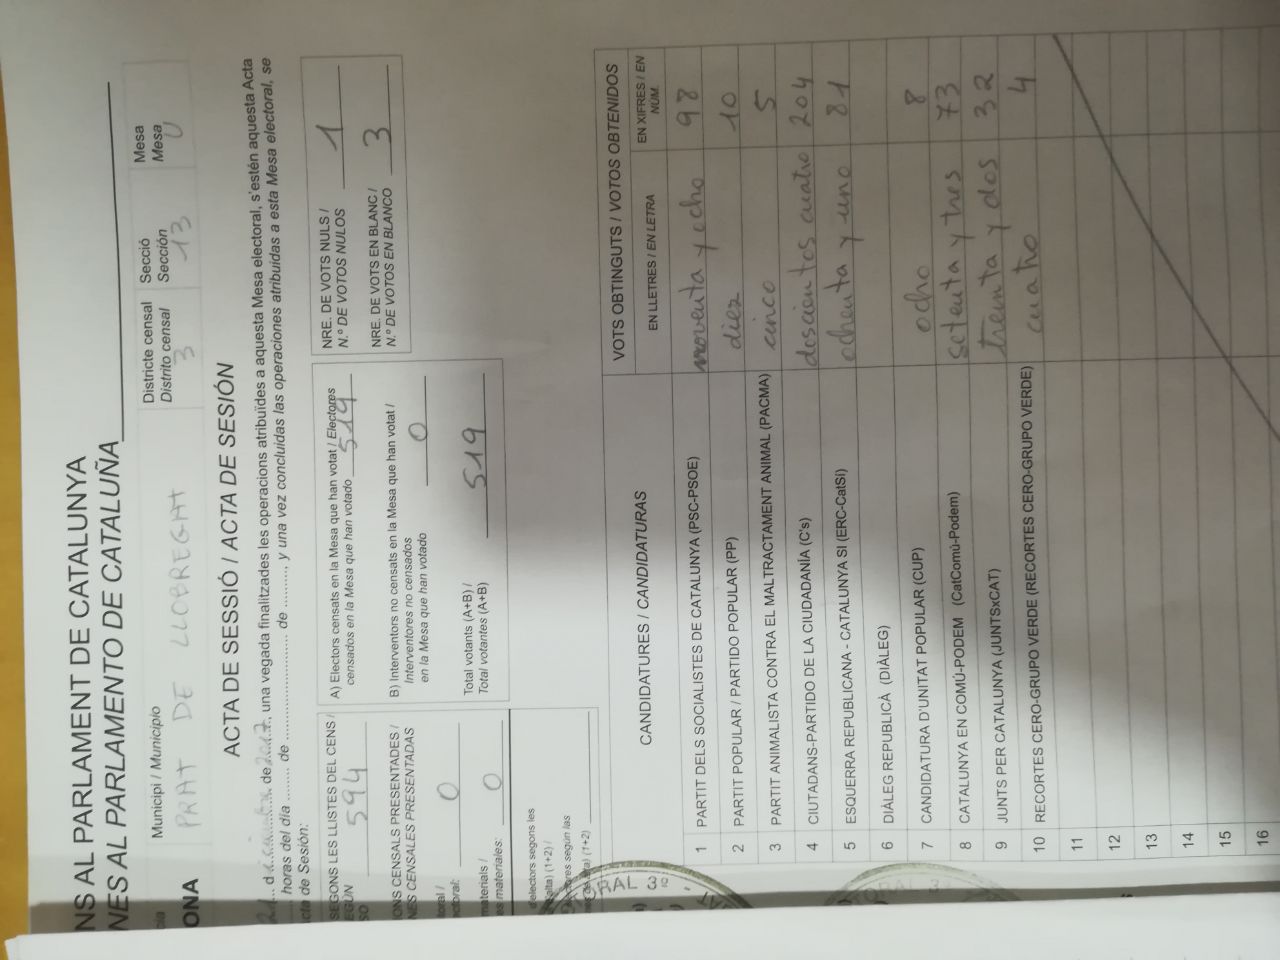 NS AL PARLAMENT DE CATALUNYA
NES AL PARLAMENTO DE CATALUÑA
ONA
Municipi / Municipio
PRAT DE LLOBREGAT
Districte censal
Distrito censal
3
Secció
Sección
13
Mesa
Mesa
U
ACTA DE SESSIÓ / ACTA DE SESIÓN
21 de 2017, una vegada finalitzades les operacions atribuïdes a aquesta Mesa electoral, s'estén aquesta Acta
horas del día ........ de ........ de ........, y una vez concluidas las operaciones atribuidas a esta Mesa electoral, se
cta de Sesión:
SEGONS LES LLISTES DEL CENS /
EGÚN
SO
594
ONS CENSALS PRESENTADES /
NES CENSALES PRESENTADAS
toral /
ctoral:
0
materials /
es materiales:
0
delectors segons les
alta) (1+2) /
ores según las
alta) (1+2)
A) Electors censats en la Mesa que han votat / Electores
censados en la Mesa que han votado 519
B) Interventors no censats en la Mesa que han votat /
Interventores no censados
en la Mesa que han votado
0
Total votants (A+B) /
Total votantes (A+B)
519
NRE. DE VOTS NULS /
N.º DE VOTOS NULOS
1
NRE. DE VOTS EN BLANC /
N.º DE VOTOS EN BLANCO
3
CANDIDATURES / CANDIDATURAS
VOTS OBTINGUTS / VOTOS OBTENIDOS
EN LLETRES / EN LETRA
EN XIFRES / EN NÚM.
1 PARTIT DELS SOCIALISTES DE CATALUNYA (PSC-PSOE) noventa y ocho 98
2 PARTIT POPULAR / PARTIDO POPULAR (PP) diez 10
3 PARTIT ANIMALISTA CONTRA EL MALTRACTAMENT ANIMAL (PACMA) cinco 5
4 CIUTADANS-PARTIDO DE LA CIUDADANÍA (C's) doscientos cuatro 204
5 ESQUERRA REPUBLICANA - CATALUNYA SI (ERC-CatSí) ochenta y uno 81
6 DIÀLEG REPUBLICÀ (DIÀLEG)
7 CANDIDATURA D'UNITAT POPULAR (CUP) ocho 8
8 CATALUNYA EN COMÚ-PODEM (CatComú-Podem) setenta y tres 73
9 JUNTS PER CATALUNYA (JUNTSxCAT) treinta y dos 32
10 RECORTES CERO-GRUPO VERDE (RECORTES CERO-GRUPO VERDE) cuatro 4
11
12
13
14
15
16